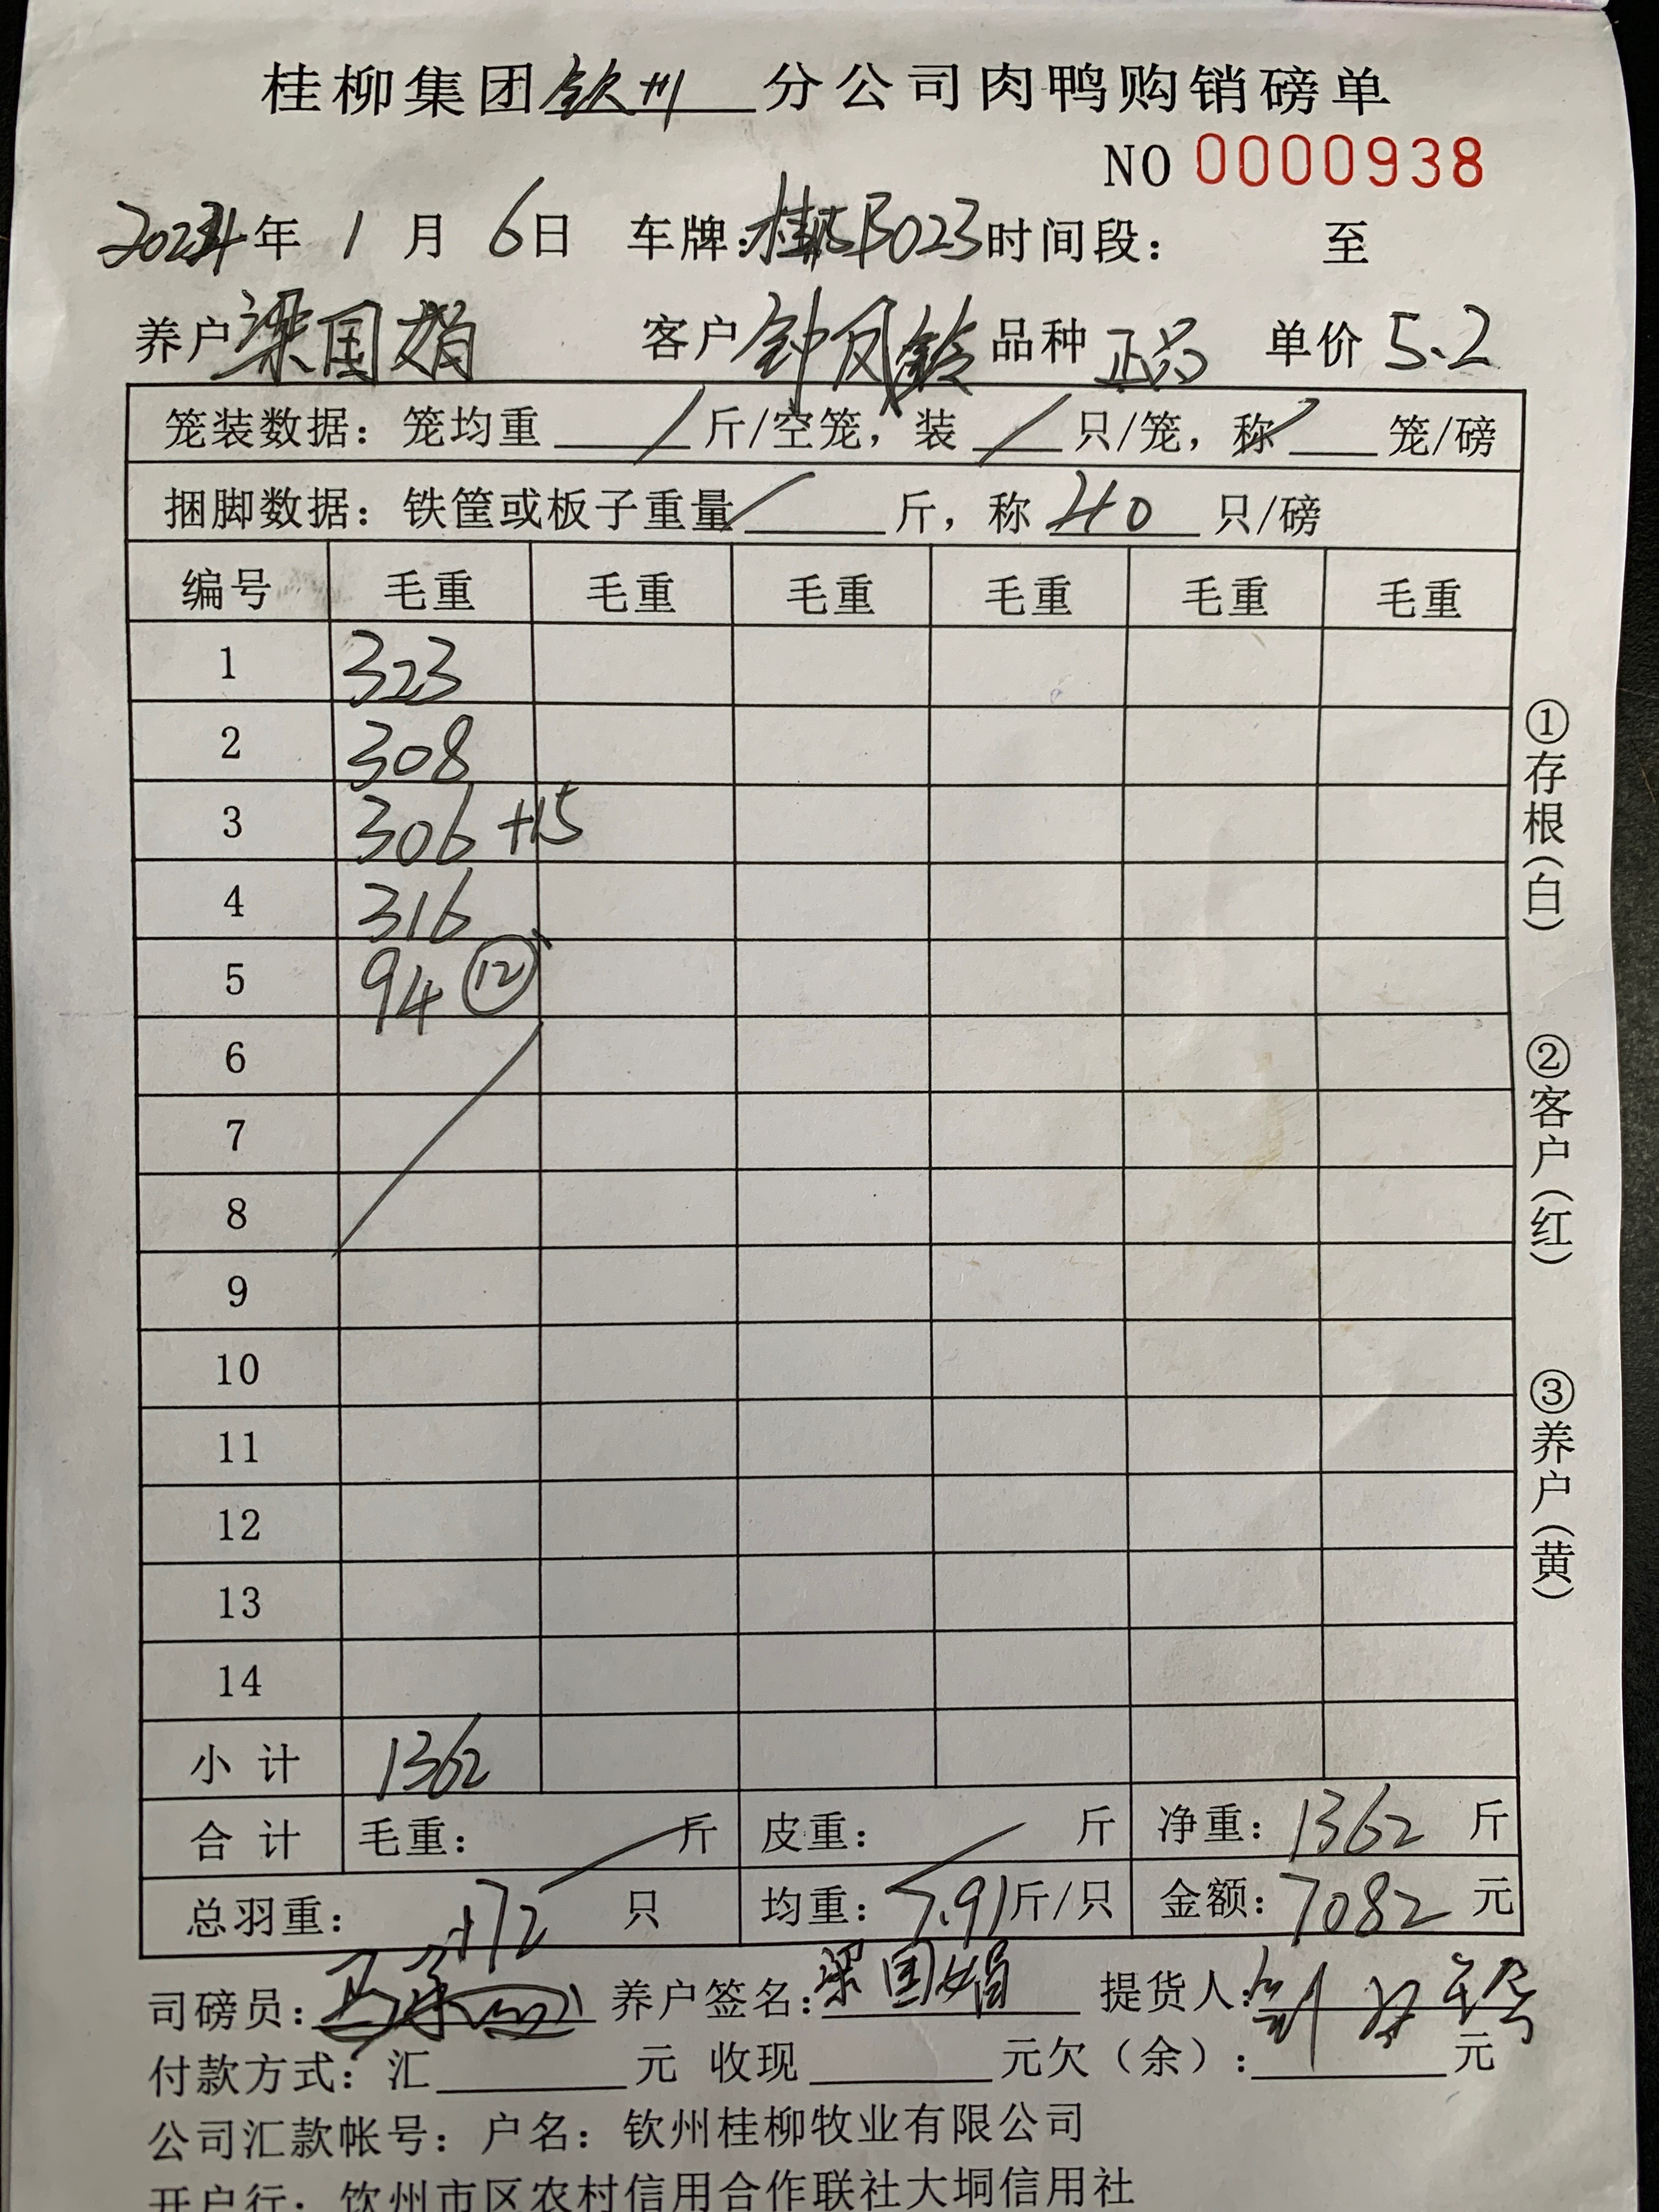 桂柳集团钦州分公司肉鸭购销磅单
NO 0000938
2024年1月6日 车牌:桂 B023 时间段: 至
养户梁国娟 客户钟凤铃 品种正品 单价5.2
笼装数据: 笼均重 / 斤/空笼, 装 / 只/笼, 称 / 笼/磅
捆脚数据: 铁筐或板子重量 / 斤, 称 40 只/磅
编号 毛重 毛重 毛重 毛重 毛重 毛重
1 323
2 308
3 306 +15
4 316
5 94 ⑫
6
7
8
9
10
11
12
13
14
小计 1362
合计 毛重: / 斤 皮重: / 斤 净重: 1362 斤
总羽重: 172 只 均重: 7.91斤/只 金额: 7082 元
司磅员: 养户签名:梁国娟 提货人:
付款方式: 汇 元 收现 元欠(余): 元
公司汇款帐号: 户名: 钦州桂柳牧业有限公司
开户行: 钦州市区农村信用合作联社大垌信用社
①存根(白)
②客户(红)
③养户(黄)